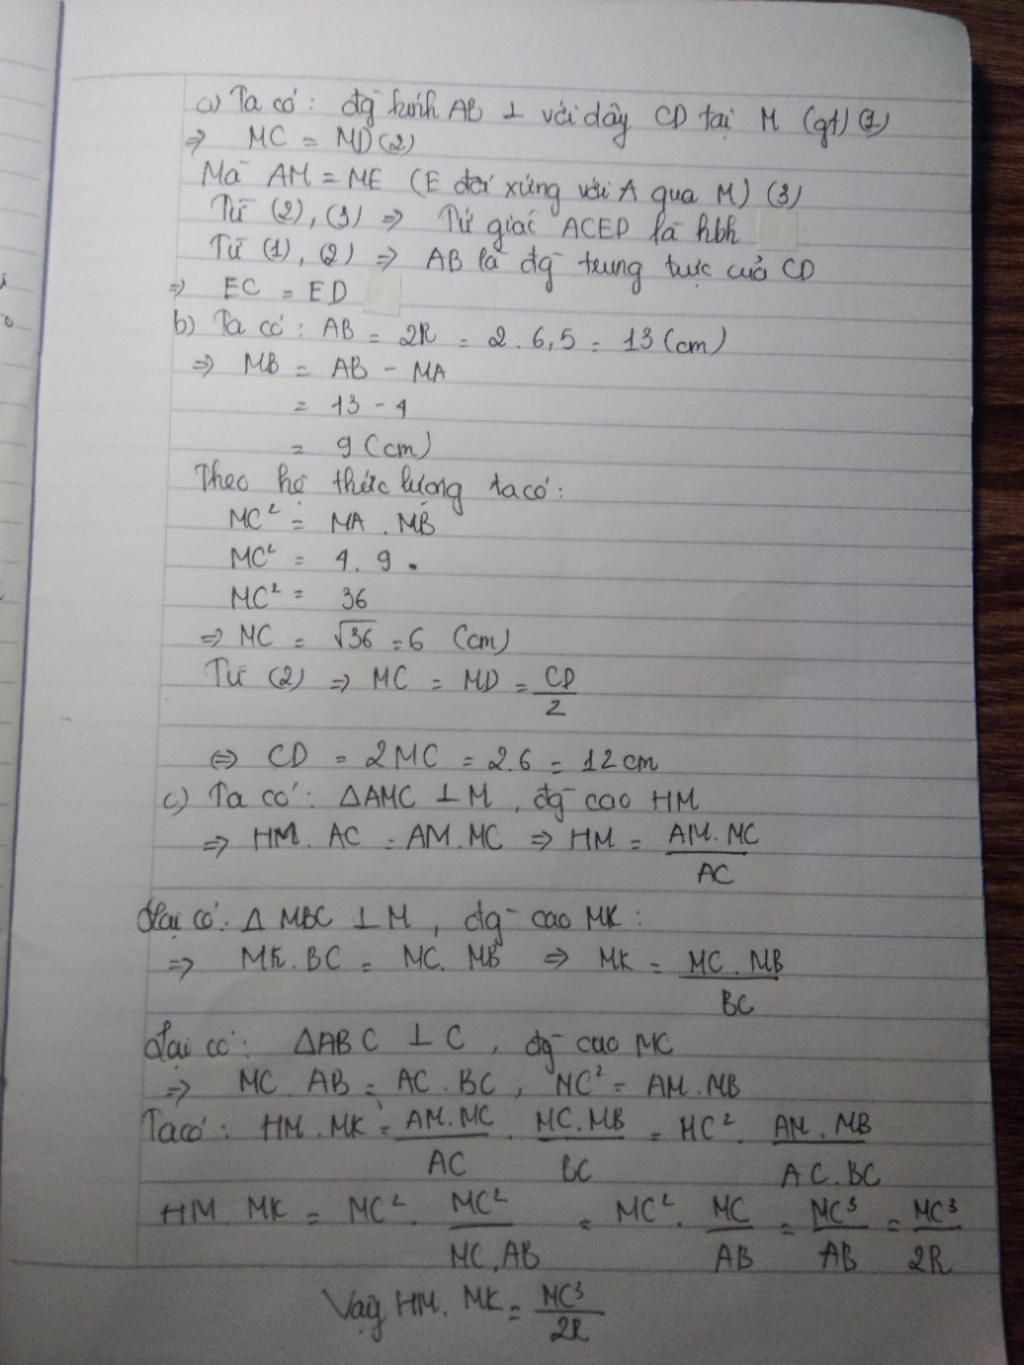 a) Ta có: đg kính AB ⊥ với dây CD tại M (gt) (1)
=> MC = MD (2)
Mà AM = ME (E đối xứng với A qua M) (3)
Từ (2), (3) => Tứ giác ACED là hbh
Từ (1), (2) => AB là đg trung trực của CD
=> EC = ED
b) Ta có: AB = 2R = 2.6,5 = 13 (cm)
=> MB = AB - MA
= 13 - 4
= 9 (cm)
Theo hệ thức lượng ta có:
MC² = MA . MB
MC² = 4. 9 .
MC² = 36
=> MC = √36 = 6 (cm)
Từ (2) => MC = MD = CD/2
<=> CD = 2MC = 2.6 = 12 cm
c) Ta có: ΔAMC ⊥ M, đg cao HM
=> HM. AC = AM.MC => HM = AM.MC/AC
Lại có: Δ MBC ⊥ M, đg cao MK:
=> MK.BC = MC. MB => MK = MC.MB/BC
Lại có: ΔABC ⊥ C, đg cao MC
=> MC. AB = AC.BC, MC² = AM.MB
Ta có: HM.MK = AM.MC/AC . MC.MB/BC = MC² . AM.MB/AC.BC
HM. MK = MC² . MC²/MC.AB = MC² . MC/AB = MC³/AB = MC³/2R
Vậy HM. MK = MC³/2R